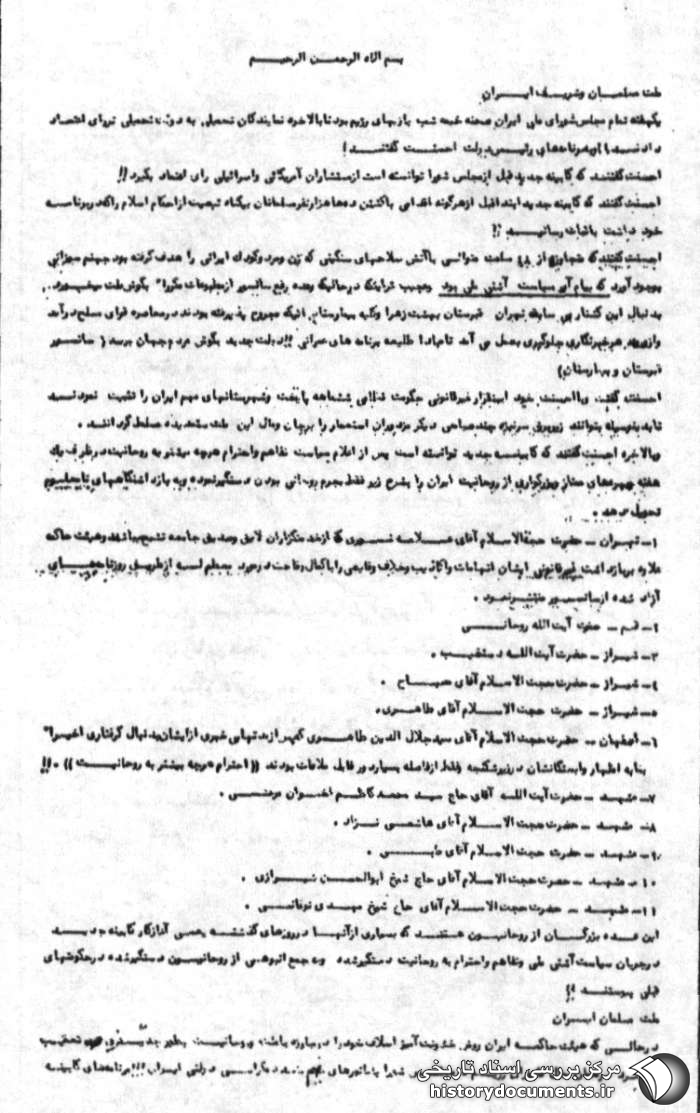 بسم الله الرحمن الرحیم
ملت مسلمان و شریف ایران
یکهفته تمام مجلس شورای ملی ایران صحنه خیمه شب بازیهای رژیم بود تا بالاخره نمایندگان تحمیلی به دولت تحمیلی تر رای اعتماد
دادند و با برنامه‌های رئیس دولت احسنت گفتند !
احسنت گفتند که کابینه جدید قبل از مجلس شورا توانسته است از مستشاران آمریکائی و اسرائیلی رای اعتماد بگیرد !!
احسنت گفتند که کابینه جدید ابتدا قبل از هرگونه اقدامی با کشتن ده‌ها هزار نفر مسلمانان بیگناه تبعیت از احکام اسلام را که در برنامه
خود داشت باثبات رسانید !!
احسنت گفتند که متجاوز از ساعت متوالی با آتش سلاحهای سنگینی که زن و مرد و کودک ایرانی را هدف گرفته بود جهنم سوزانی
بوجود آورد که پیام آور سیاست آشتی ملی بود وعجیب تر اینکه در حالیکه وعده رفع سانسور از مطبوعات مکررا" بگوش ملت میخورد..
بدنبال این کشتار بی سابقه تهران قبرستان بهشت زهرا و کلیه بیمارستان‌ها اینکه مجروح پذیرفته بودند در محاصره قوای مسلح درآمد
و از هر خبرنگاری جلوگیری بعمل می آمد تا مبادا طلیعه برنامه های عمرانی !! دولت جدید بگوش مردم جهان برسد ( سانسور
قبرستان و بیمارستان)
احسنت گفتند و با احسنت خود استقرار غیرقانونی حکومت نظامی ششماهه پایتخت و شهرستانهای مهم ایران را تثبیت نمودند
تا بدینوسیله بتوانند زیر برق سرنیزه چند صباحی دیگر مزدوران استعمار را بر جان و مال این ملت ستمدیده مسلط گردانند .
و بالاخره احسنت گفتند که کابینه جدید توانسته است پس از اعلام سیاست تفاهم و احترام هرچه بیشتر به روحانیت در ظرف یک
هفته چهره‌های ممتاز و بزرگواری از روحانیت ایران را بشرح زیر فقط بجرم روحانی بودن دستگیر نموده و به بازداشتگاههای
تحویل دهد .
۱- تهران - حضرت حجةالاسلام آقای علامه نوری که از خدمتگزاران لایق و صدیق جامعه تشیع میباشد و هیئت حاکمه
علاوه بر بازداشت غیرقانونی ایشان اتهامات و اکاذیب وخلاف واقعی را با کمال وقاحت در مورد معظم له از طریق روزنامه‌های
آزاد شده از سانسور منتشر نمود .
۲- قم - حضرت آیت الله روحانی
۳- شیراز - حضرت آیت الله دستغیب .
۴- شیراز - حضرت حجت الاسلام آقای مصباح .
۵- شیراز - حضرت حجت الاسلام آقای طاهری.
۶- اصفهان - حضرت حجت الاسلام آقای سید جلال الدین طاهری که پس از مدتهای خبری از ایشان بدنبال گرفتاری اخیرا"
بنابه اظهار وابستگانشان در زیر شکنجه فقط از فاصله بسیار دور قابل ملاقات بودند (( احترام هرچه بیشتر به روحانیت )) . !!
۷- مشهد - حضرت آیت الله آقای حاج سید محمد کاظم اخوان مرعشی .
۸- مشهد - حضرت حجت الاسلام آقای هاشمی نژاد .
۹- مشهد - حضرت حجت الاسلام آقای طبسی .
۱۰- مشهد - حضرت حجت الاسلام آقای حاج شیخ ابوالحسن شیرازی .
۱۱- مشهد - حضرت حجت الاسلام آقای حاج شیخ مهدی نوقانی .
این عده بزرگان از روحانیون هستند که بسیاری از آنها در روزهای گذشته یعنی آغاز کار کابینه جدید
در جریان سیاست آشتی ملی و تفاهم و احترام به روحانیت دستگیر شده و به جمع انبوهی از روحانیون دستگیر شده در حکومتهای
قبلی پیوستند !!
ملت مسلمان ایران
در حالی که هیئت حاکمه ایران روش خشونت آمیز اسلاف خود را در مبارزه با ملت و روحانیت بطور جدی تعقیب
برنامه‌های کابینه
مرکز بررسی اسناد تاریخی
historydocuments.ir